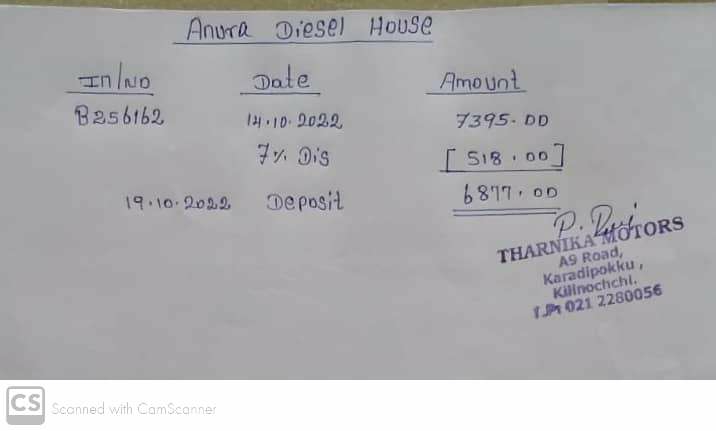 Anura Diesel House
In/No Date Amount
B256162 14.10.2022 7395.00
7% Dis [518.00]
19.10.2022 Deposit 6877.00
THARNIKA MOTORS
A9 Road,
Karadipokku,
Kilinochchi.
021 2280056
CS Scanned with CamScanner